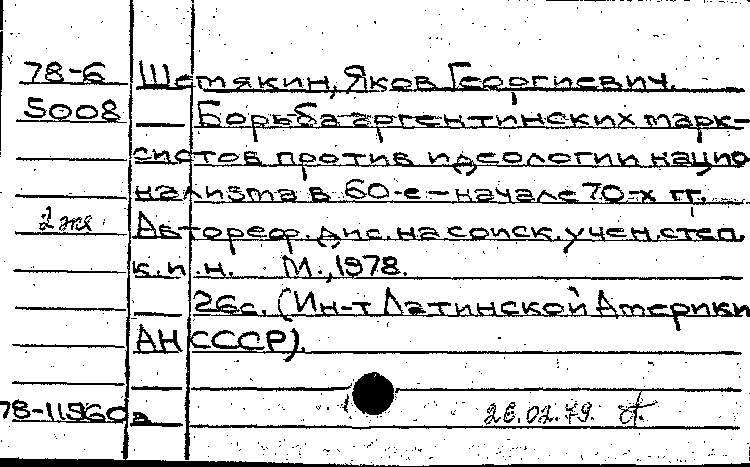 78-6 Шемякин, Яков Георгиевич.
5008 Борьба аргентинских марк-
систов против идеологии нацио
нализма в 60-е – начале 70-х гг.
2 экз. Автореф. дис. на соиск. учен. степ.
к.и.н. М., 1978.
26с. (Ин-т Латинской Америки
АН СССР).
78-11560а 26.02.79.